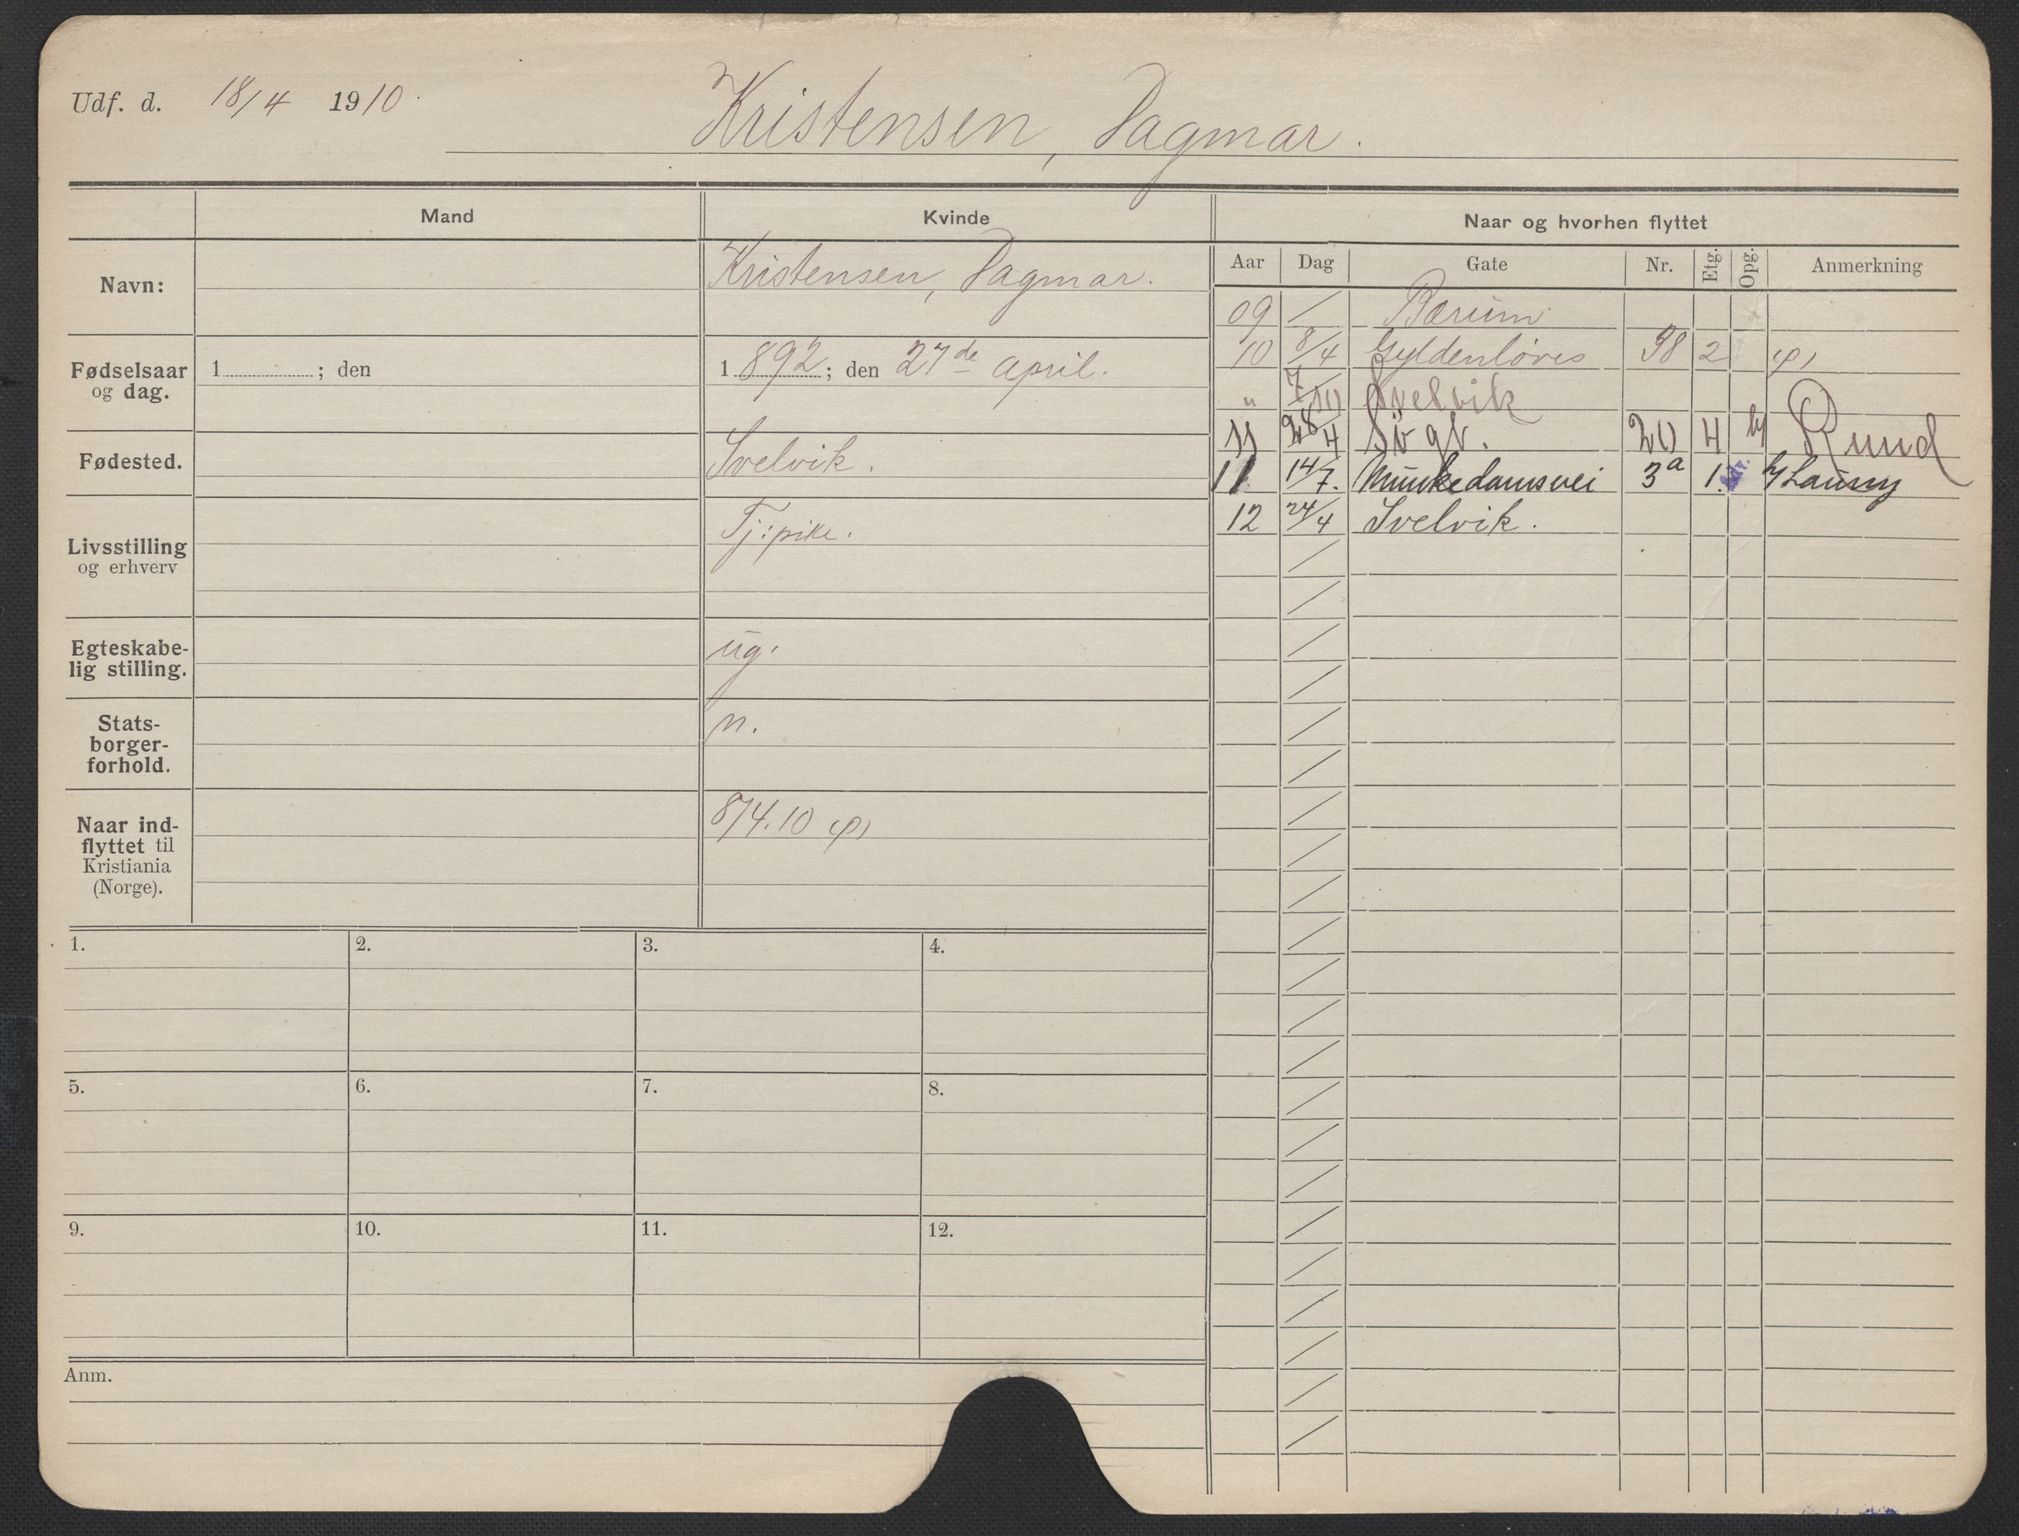 Udf. d. 18/4 1910.
Kristensen, Dagmar.
Mand
Kvinde
Naar og hvorhen flyttet
Aar Dag Gate Nr. Etg. Opg. Anmerkning
Navn:
Kristensen, Dagmar.
Fødselsaar
og dag.
1 ; den
1 892 ; den 27de april.
Fødested.
Svelvik.
Livsstilling
og erhverv
Tj:pike.
Egteskabe-
lig stilling.
ug.
Stats-
borger-
forhold.
n.
Naar ind-
flyttet til
Kristiania
(Norge).
8/4.10
09 / Bærum
10 8/4 Gyldenløves 38 2
" 7/10 Svelvik
11 28/4 20 4 h/ Rund
11 14/7. Munkedamsvei 3a 1.
12 24/4 Svelvik.
1.
2.
3.
4.
5.
6.
7.
8.
9.
10.
11.
12.
Anm.